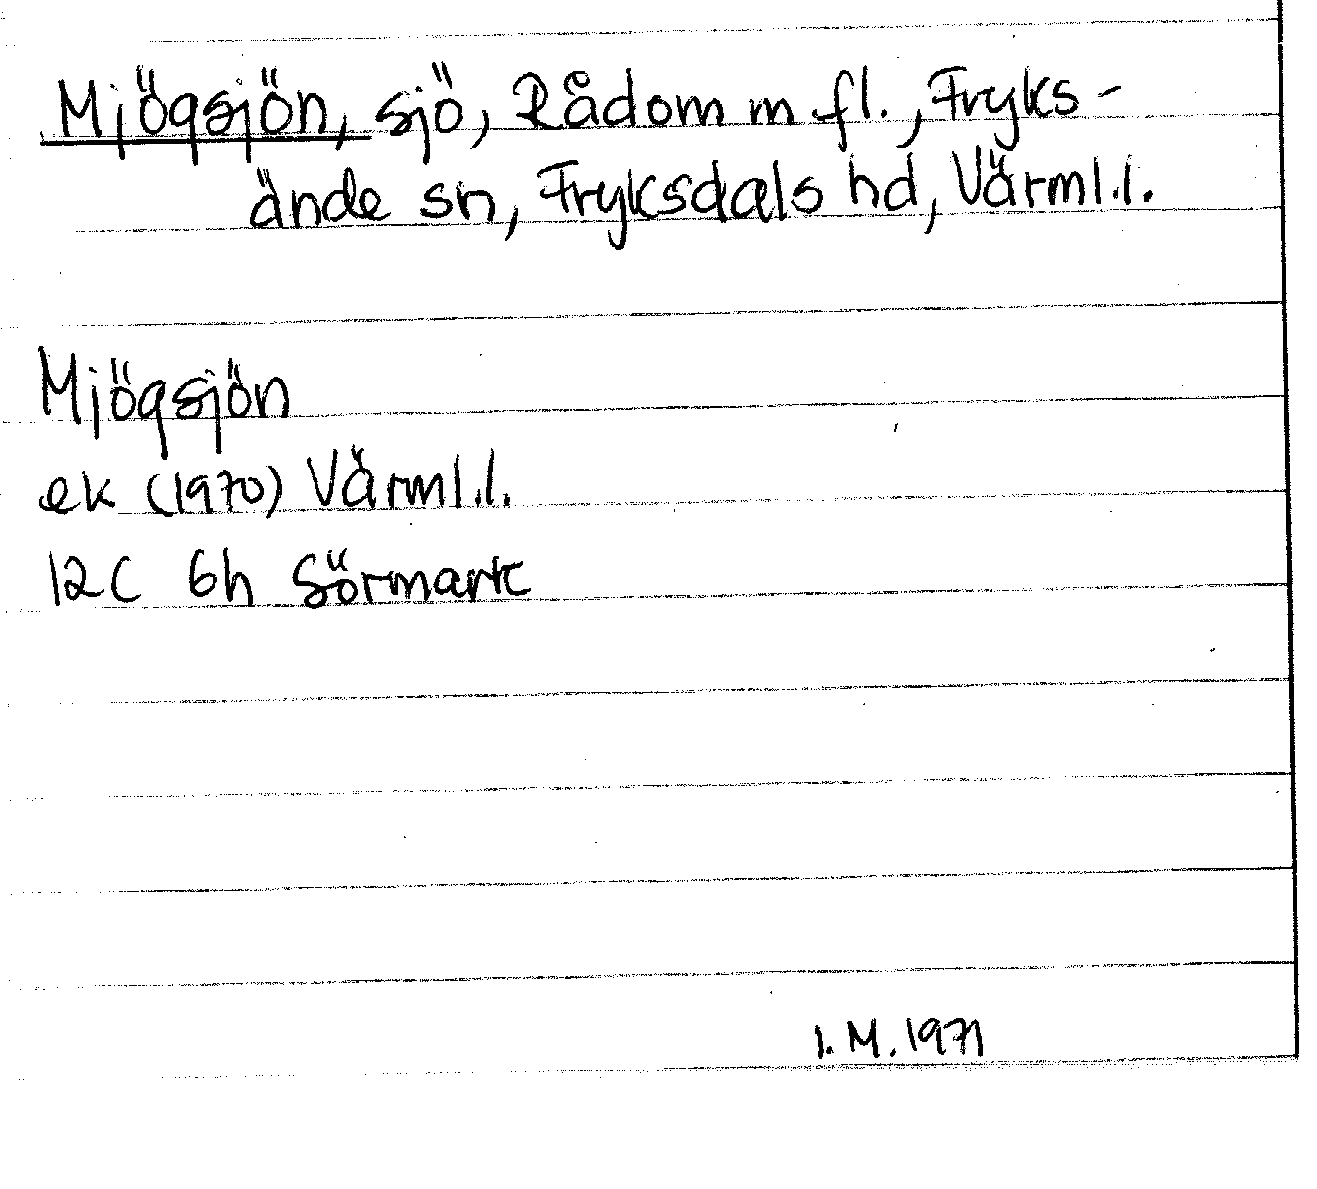 Mjögsjön, sjö, Rådom m fl., Fryks-
ände sn, Fryksdals hd, Värml.l.
Mjögsjön
ek (1970) Värml.l.
12C 6h Sörmark
I.M. 1971